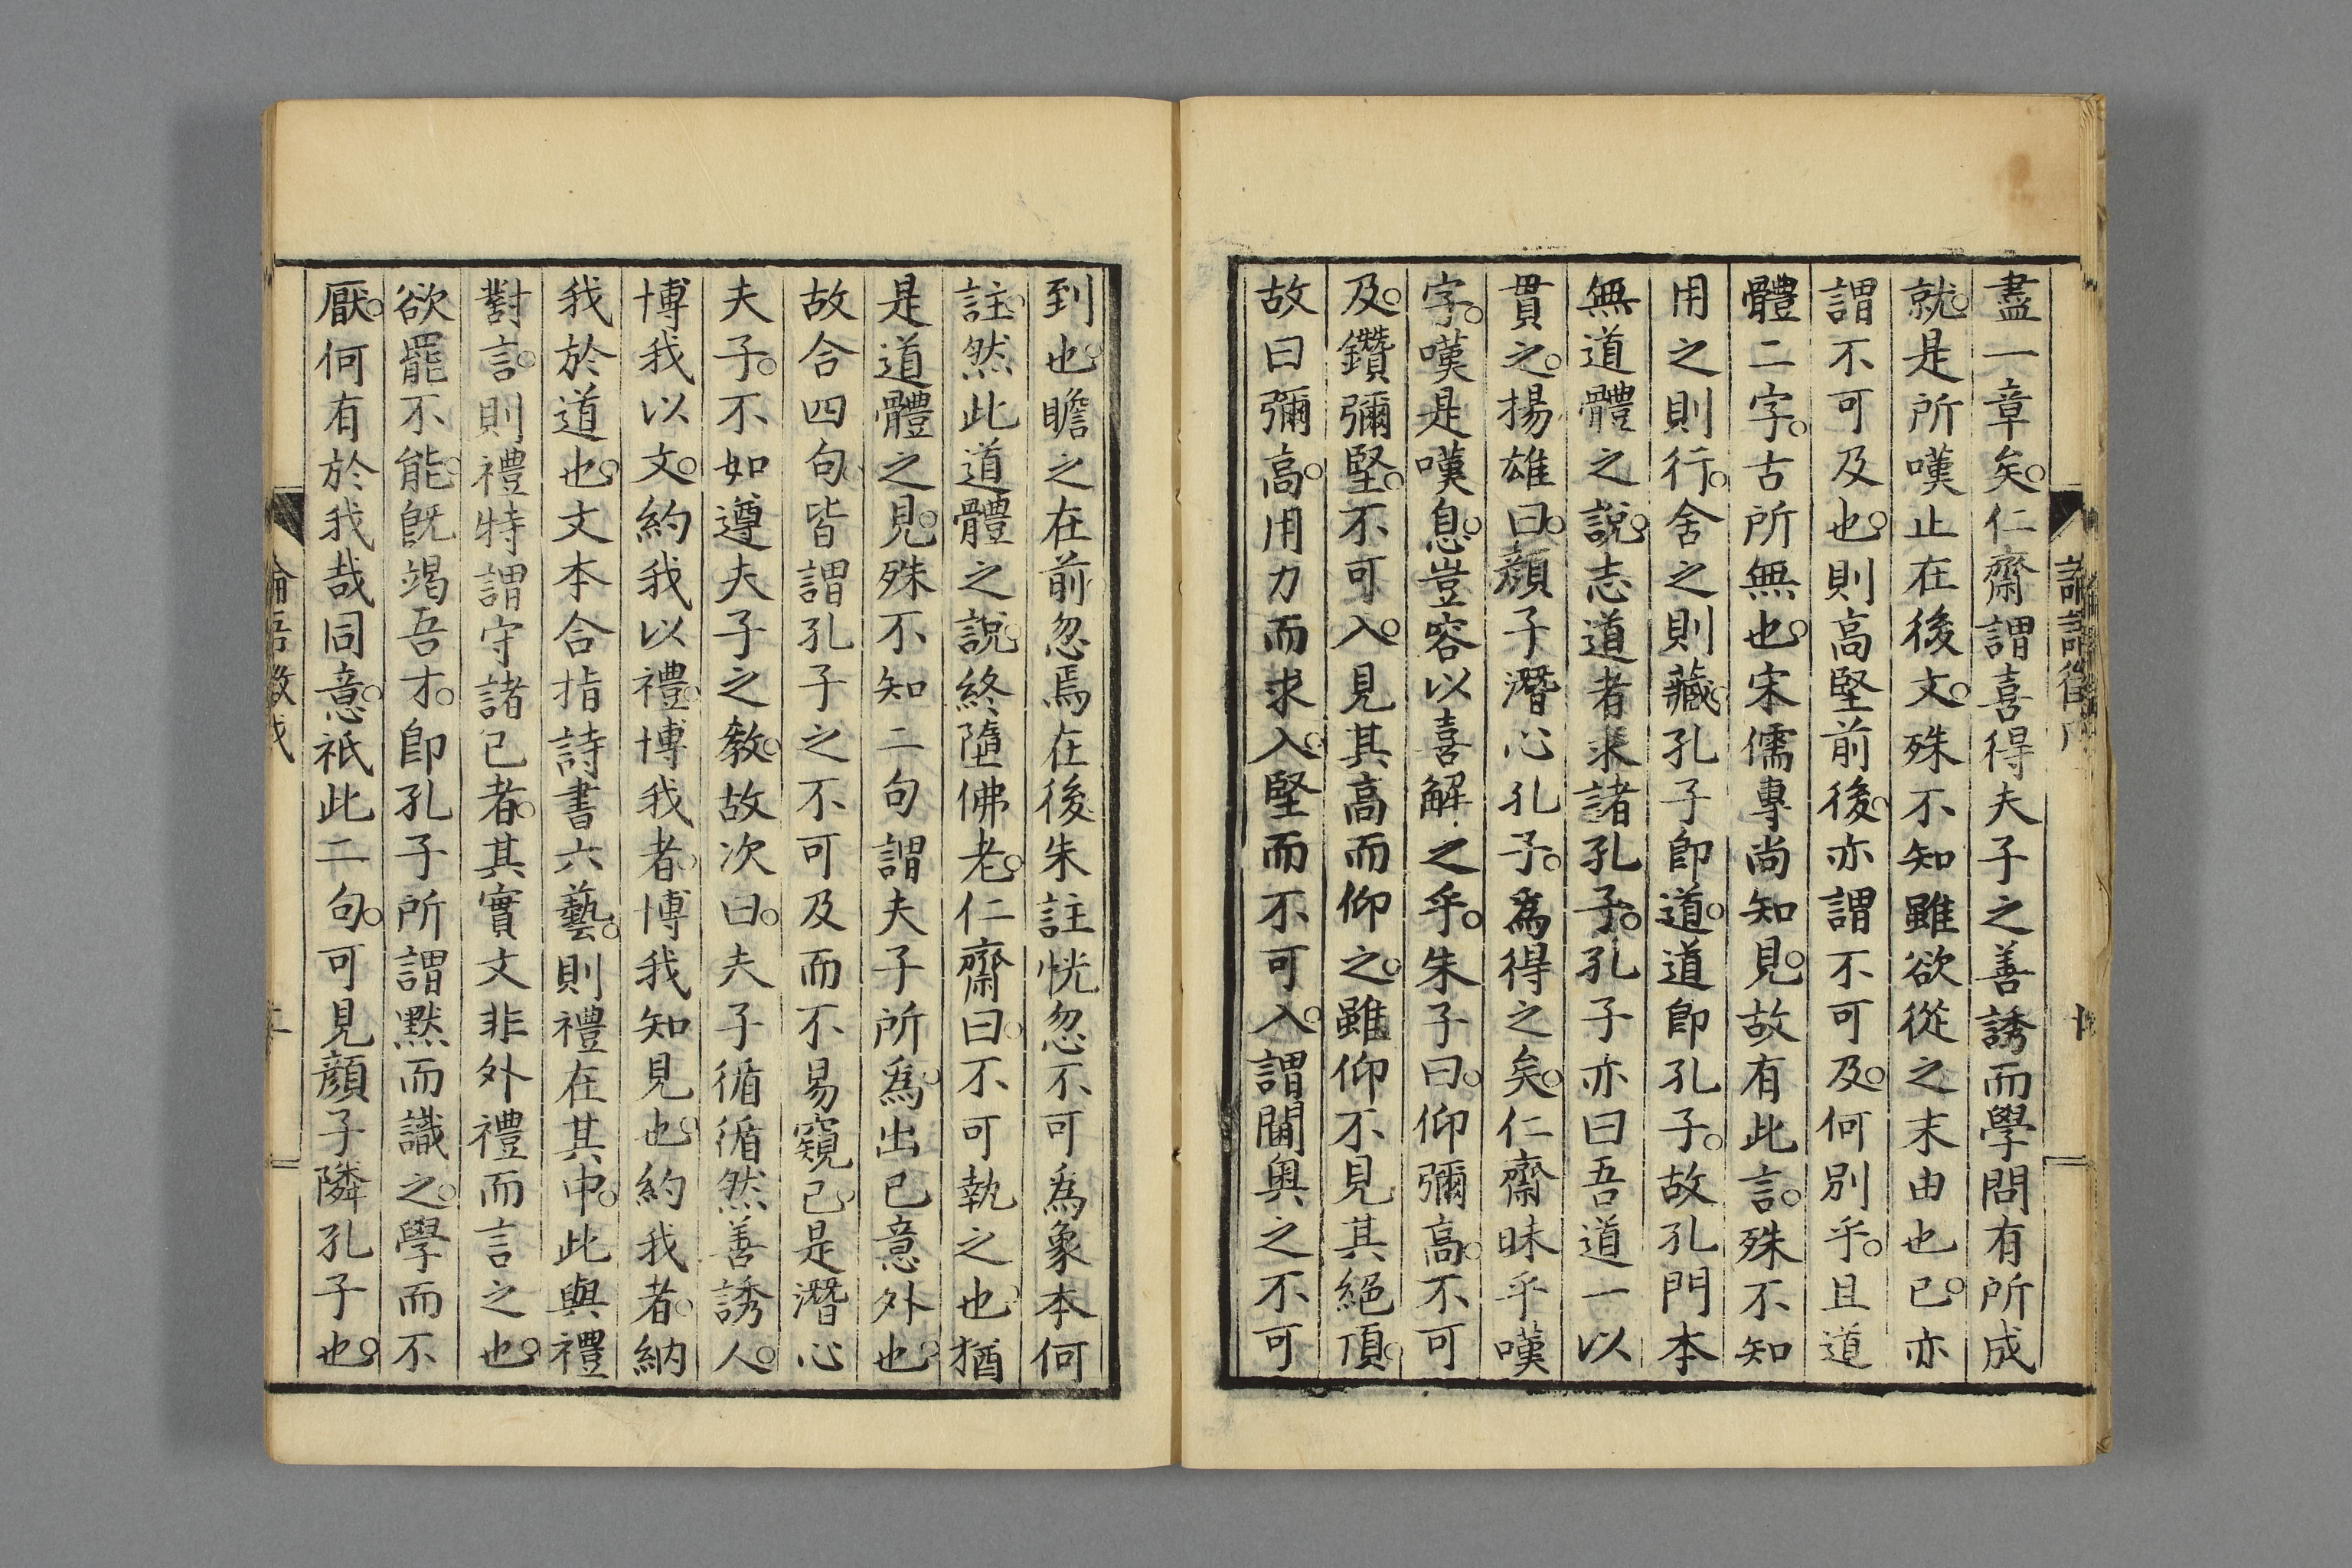 盡一章矣。仁齋謂喜得夫子之善誘而學問有所成
就。是所嘆止在後文。殊不知雖欲從之末由也已。亦
謂不可及也。則高堅前後。亦謂不可及。何別乎。且道
體二字。古所無也。宋儒專尚知見。故有此言。殊不知
用之則行。舍之則藏。孔子卽道。道卽孔子。故孔門本
無道體之說。志道者求諸孔子。孔子亦曰吾道一以
貫之。揚雄曰。顏子潛心孔子。爲得之矣。仁齋昧乎嘆
字。嘆是嘆息。豈容以喜解之乎。朱子曰。仰彌高。不可
及。鑽彌堅。不可入。見其高而仰之。雖仰不見其絕頂。
故曰彌高。用力而求入。堅而不可入。謂閫奧之不可
到也。瞻之在前忽焉在後。朱註恍忽不可爲象。本何
註。然此道體之說。終墮佛老。仁齋曰。不可執之也。猶
是道體之見。殊不知二句謂夫子所爲。出己意外也。
故合四句。皆謂孔子之不可及而不易窺已。是潛心
夫子。不如遵夫子之敎。故次曰。夫子循循然善誘人。
博我以文。約我以禮。博我者。博我知見也。約我者。納
我於道也。文本合指詩書六藝。則禮在其中。此與禮
對言。則禮特謂守諸己者。其實文非外禮而言之也。
欲罷不能。旣竭吾才。卽孔子所謂默而識之。學而不
厭。何有於我哉同意。祇此二句。可見顏子隣孔子也。